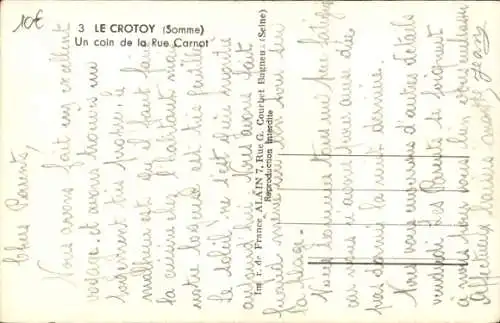 10€
3 LE CROTOY (Somme)
Un coin de la Rue Carnot
Imp. r. de France ALAIN 7, Rue G. Courbet Bagneux (Seine)
Reproduction Interdite
Chers Parents,
Nous avons fait un excellent
voyage et avons trouvé un
logement très propre, le
malheur est qu'il faut faire
la cuisine chez l'habitant mais
notre logeuse est très gentille.
Le soleil ne s'est pas montré
aujourd'hui. Nous avons fait
la plage.
Nous sommes tous un peu fatigués
car nous n'avons
pas dormi la nuit dernière.
Nous vous enverrons d'autres détails
vendredi. Les Parents se joignent
à nous pour vous
Affectueux Baisers